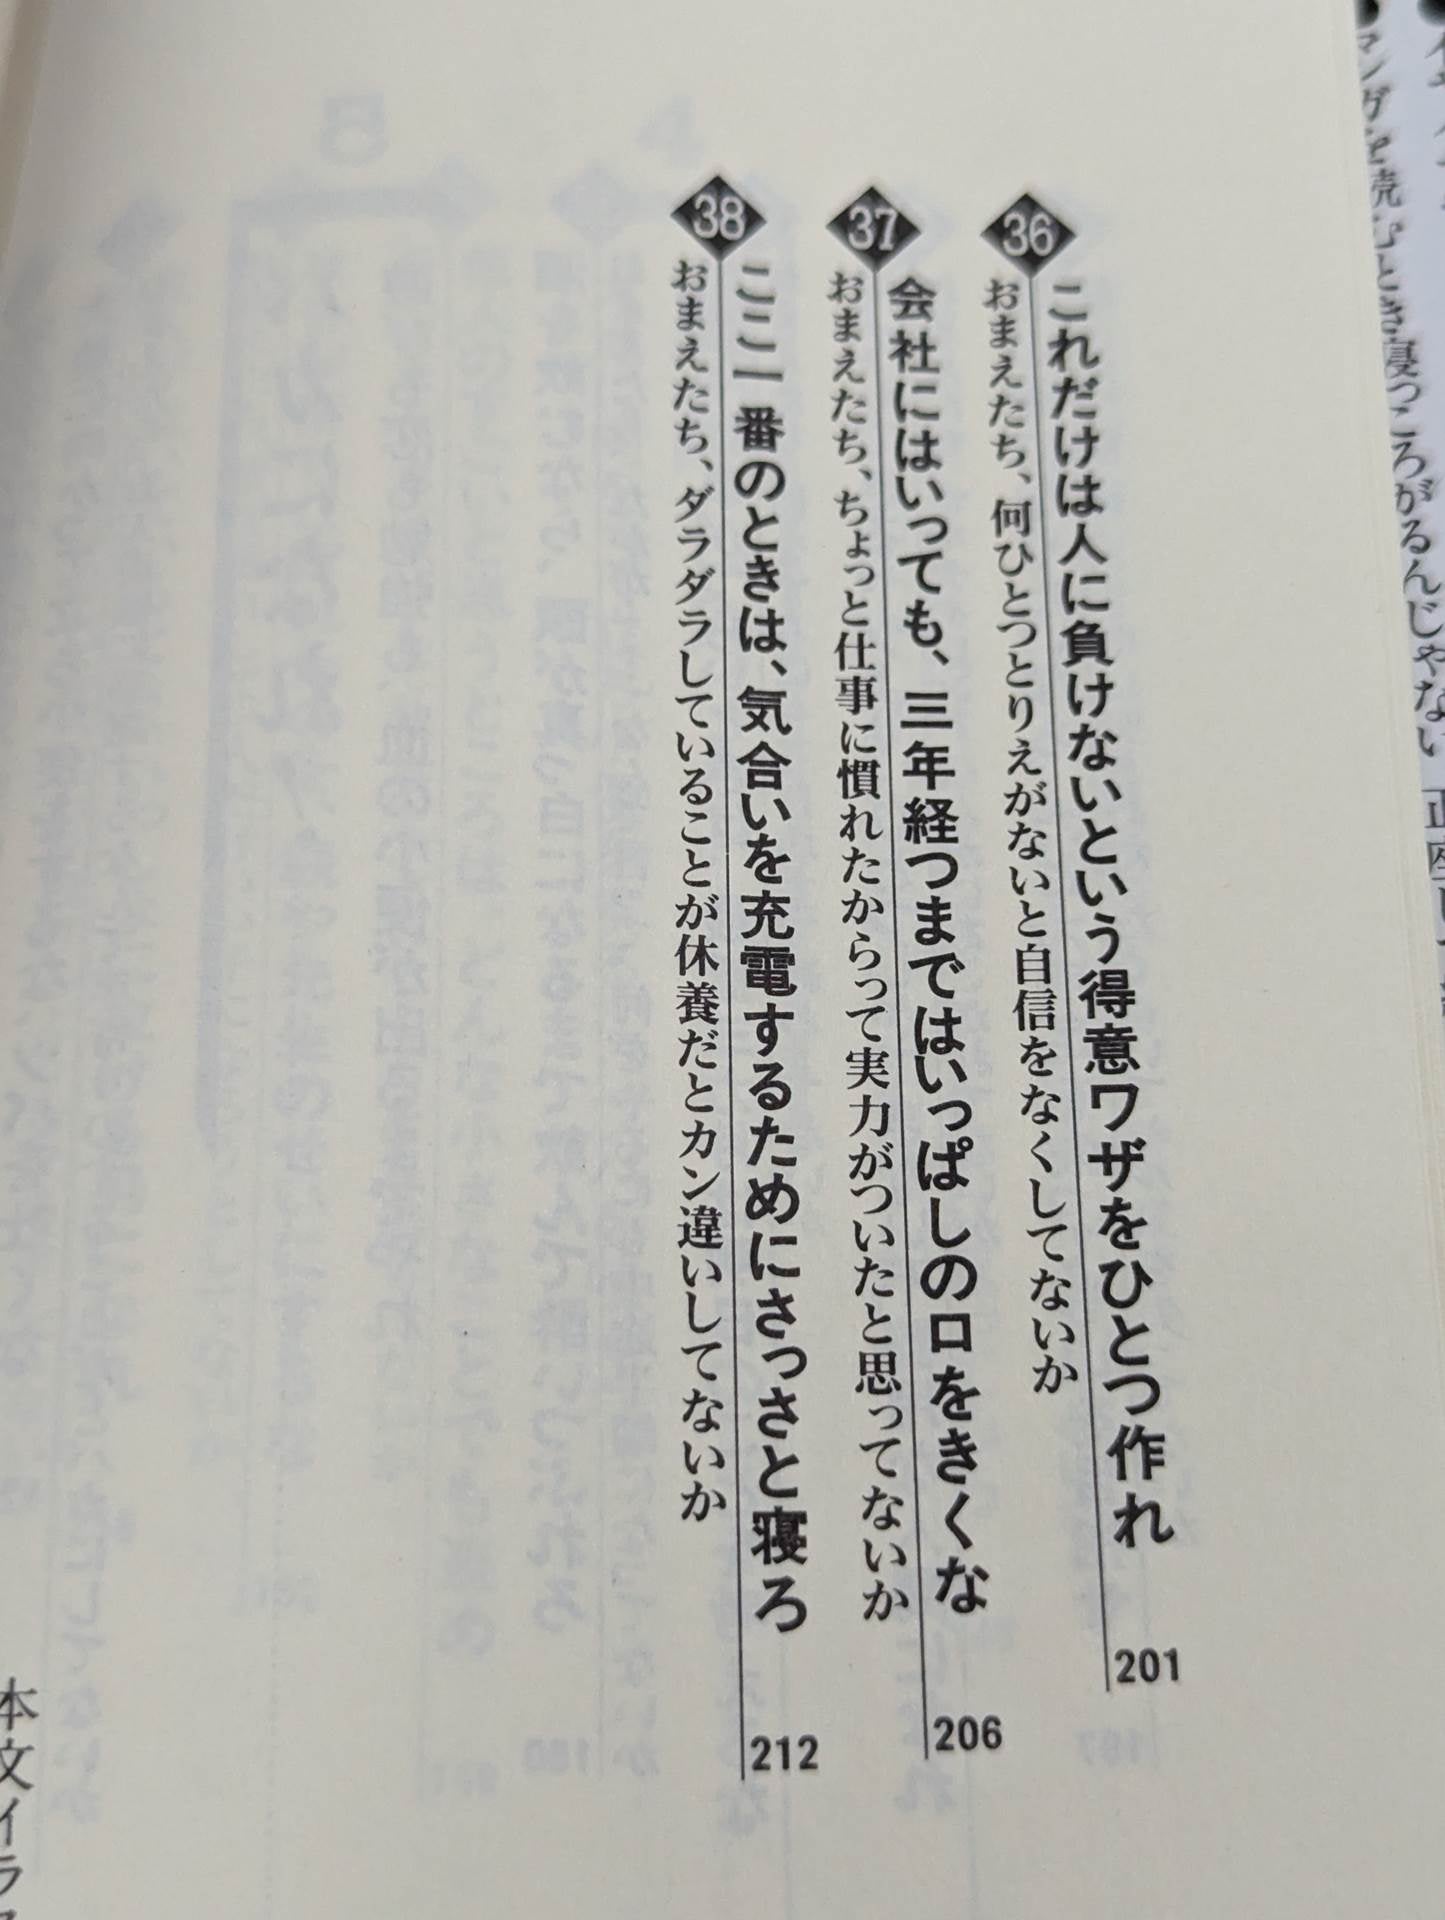 マンガを読むとき寝っころがるんじゃない 正座し
36
これだけは人に負けないという得意ワザをひとつ作れ
201
おまえたち、何ひとつとりえがないと自信をなくしてないか
37
会社にはいっても、三年経つまではいっぱしの口をきくな
206
おまえたち、ちょっと仕事に慣れたからって実力がついたと思ってないか
38
ここ一番のときは、気合いを充電するためにさっさと寝ろ
212
おまえたち、ダラダラしていることが休養だとカン違いしてないか
本文イラス